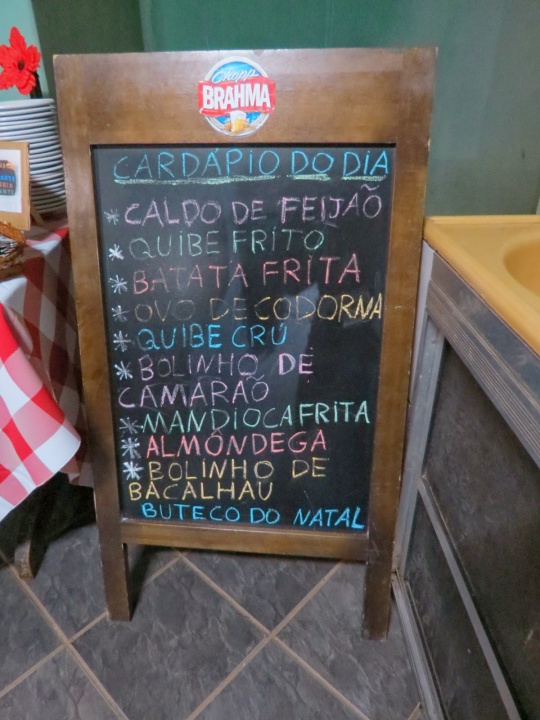 Chopp
BRAHMA
CARDÁPIO DO DIA
* CALDO DE FEIJÃO
* QUIBE FRITO
* BATATA FRITA
* OVO DE CODORNA
* QUIBE CRÚ
* BOLINHO DE
CAMARÃO
* MANDIOCA FRITA
* ALMÔNDEGA
* BOLINHO DE
BACALHAU
BUTECO DO NATAL